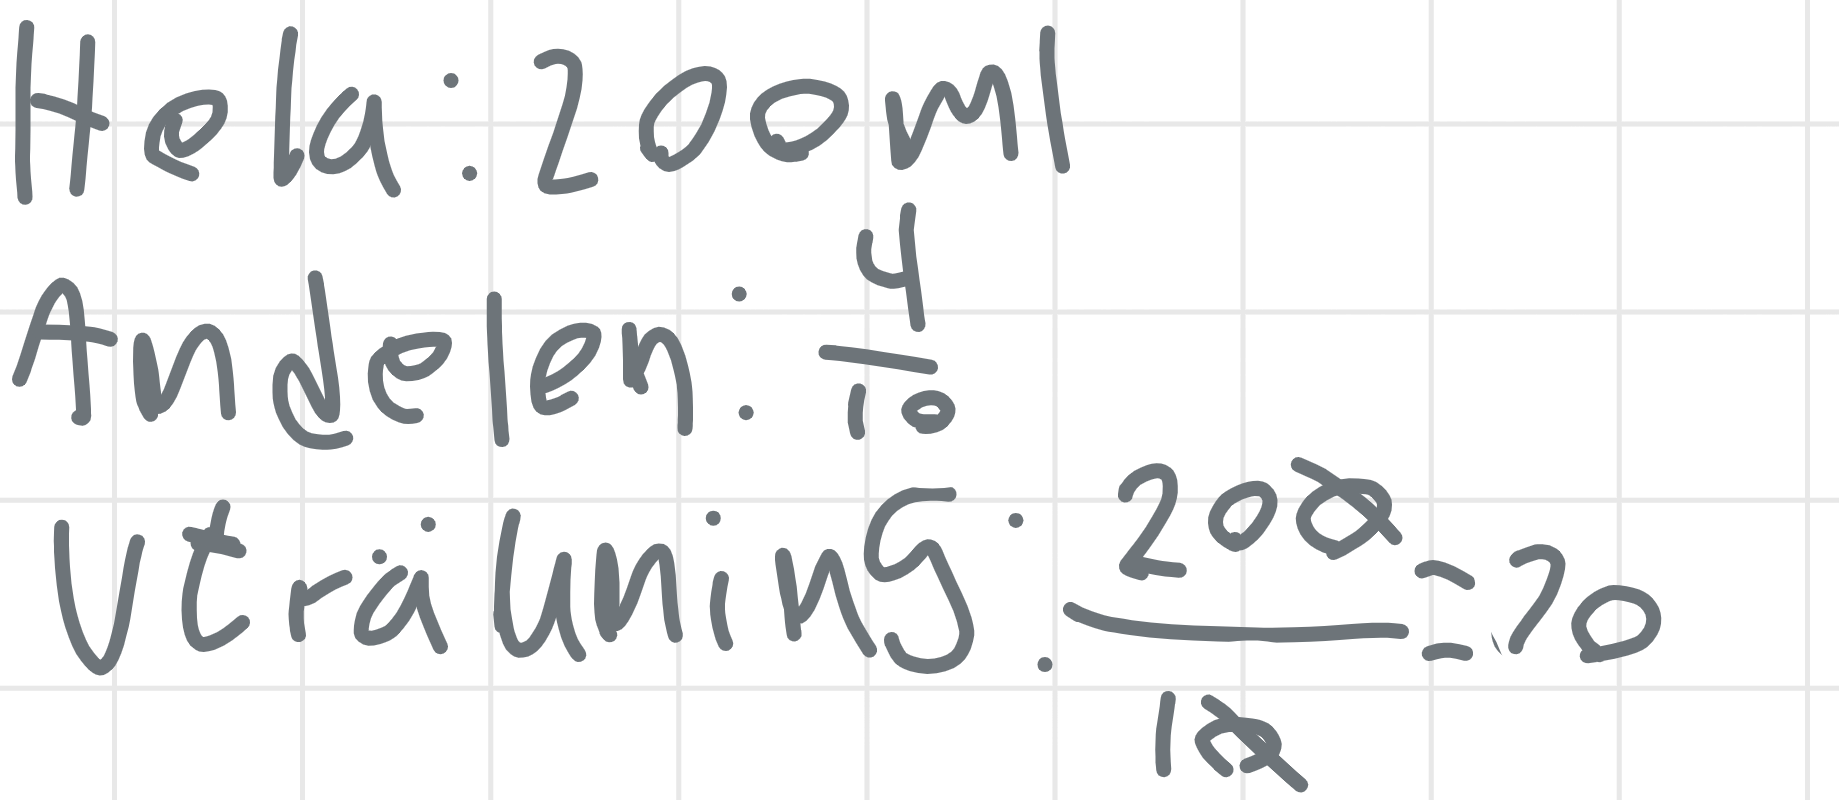 Hela: 200ml
Andelen: 4/10
Uträkning: 200/10 = 20